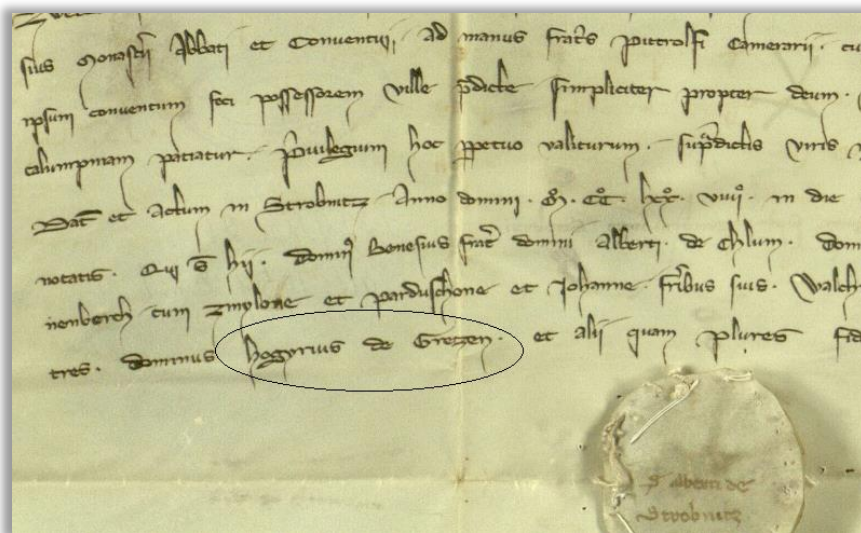 sius Monast'ii Abbati et Conventui, ad manus frat's pittrolfi Camerarii.
ipsum conventum foci possessorem ville p'dicte simpliciter propter deum.
calumpniam patiatur. p'uilegium hoc p'petuo valiturum. sup'dictis viris
Dat' et actum in Strobnitz Anno domini. M. CC. lxx. viiii. in die
notatis. Qui s' hij. domin' Benesius frat' domini Alberti. de Chlum.
nenberch cum zmylone et parduschone et Johanne. fr'ibus suis.
tres. dominus hogyrius de Gretzen. et alij quam plures
Strobnitz